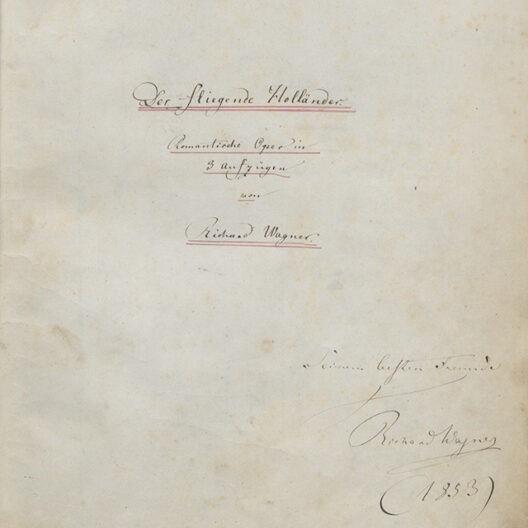 Der fliegende Holländer.
Romantische Oper in
3 Aufzügen
von
Richard Wagner.
Seinem besten Freunde
Richard Wagner
(1853)